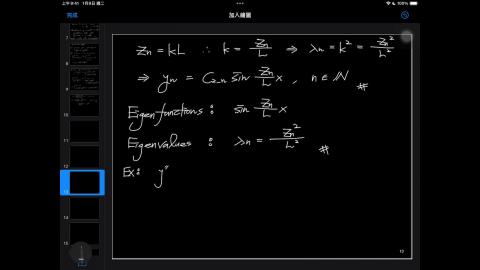 上午9:41 1月9日 週二
100%
完成
加入繪圖
Zn = kL ∴ k = Zn/L ⇒ λn = k² = Zn²/L²
⇒ yn = C2,n sin Zn/L x , n ∈ ℕ #
Eigenfunctions : sin Zn/L x
Eigenvalues : λn = Zn²/L² #
Ex: y"
7
8
9
10
11
12
13
14
15